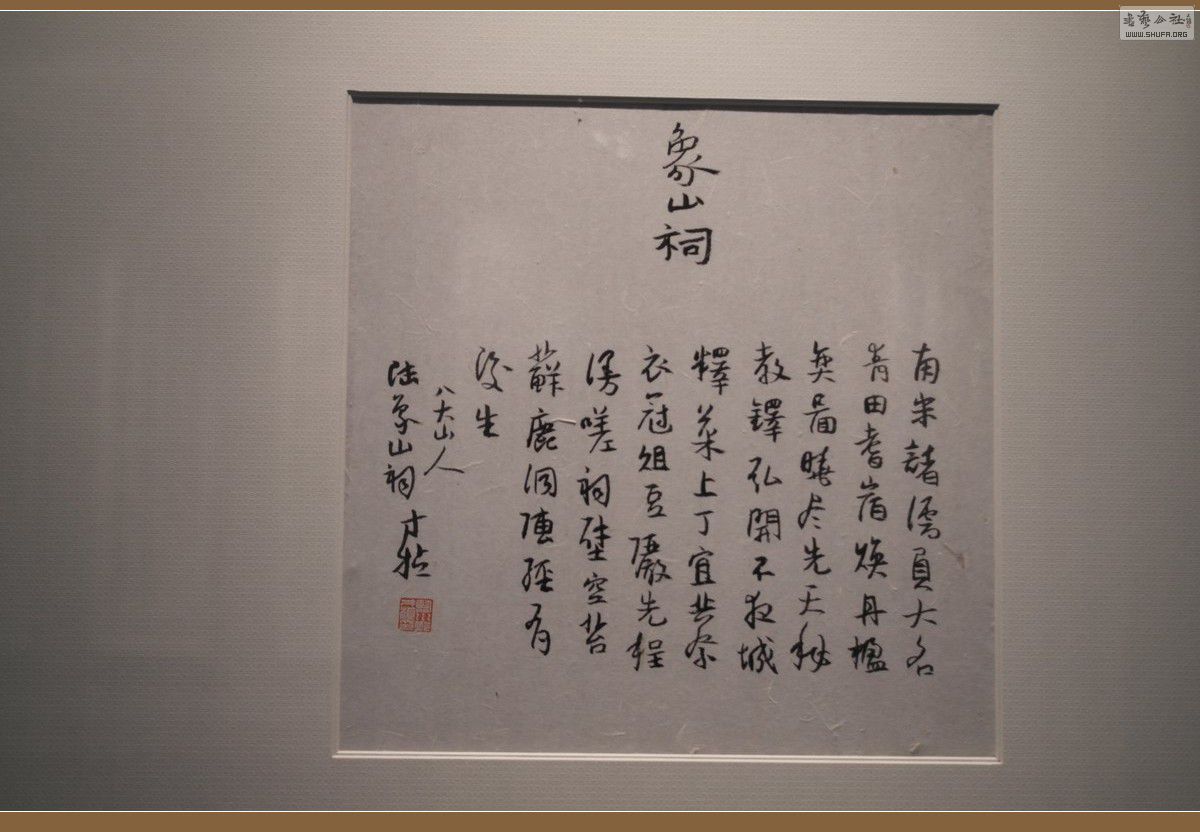 象山祠
南宋諸儒員大名
青田耆宿煥丹楹
奠圖曉尽先天秘
教鐸弘開不夜城
釋菜上丁宜共祭
衣冠俎豆嚴先程
漫嗟祠壁空苔
蘚鹿洞傳經有
後生
八大山人
陸象山祠
WWW.SHUFA.ORG